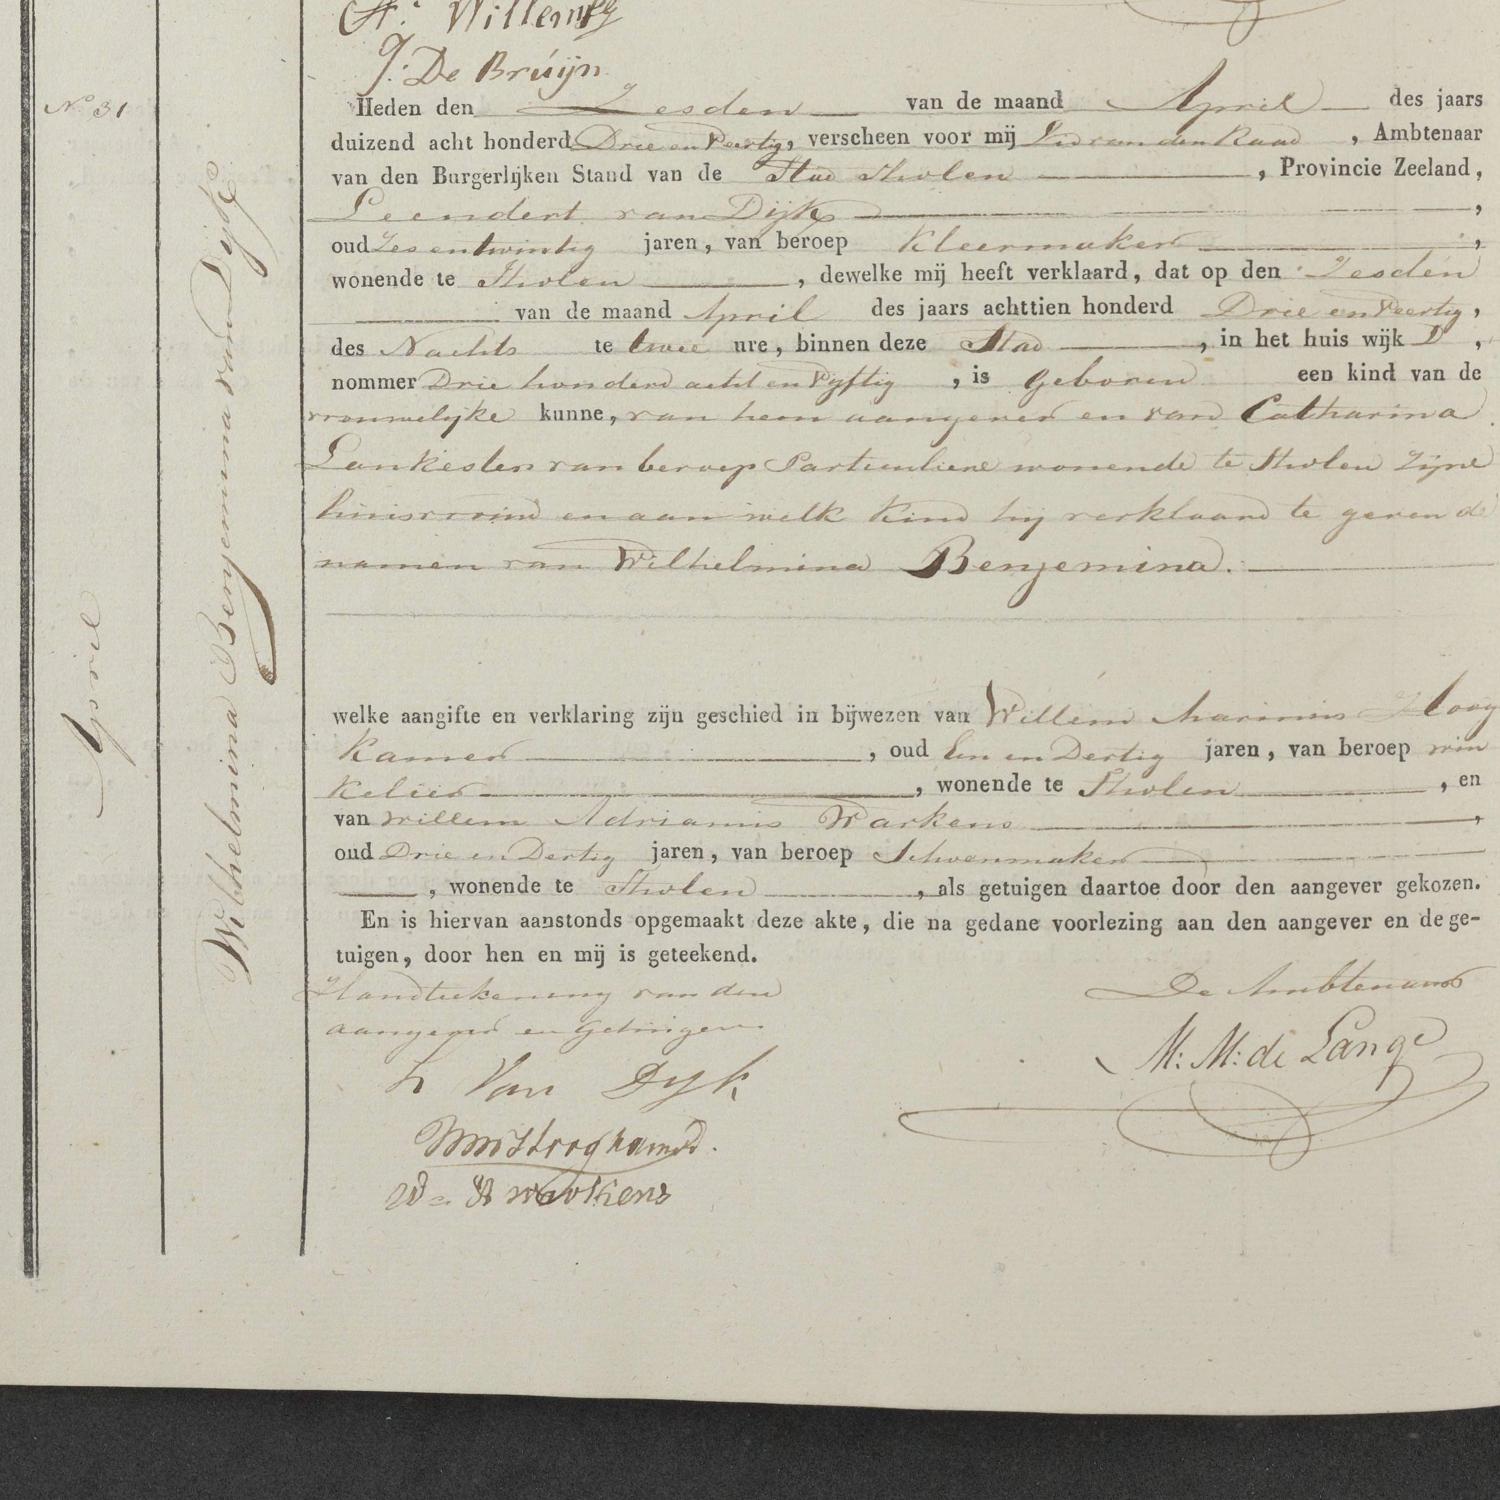 Willems
J. De Bruijn
N.o 31
Heden den Zesden van de maand April des jaars
duizend acht honderd Drie en Veertig, verscheen voor mij Lid van den Raad, Ambtenaar
van den Burgerlijken Stand van de Stad Tholen, Provincie Zeeland,
Leendert van Dijk,
oud Zes en twintig jaren, van beroep Kleermaker,
wonende te Tholen, dewelke mij heeft verklaard, dat op den Zesden
van de maand April des jaars achttien honderd Drie en Veertig,
des Nachts te twee ure, binnen deze Stad, in het huis wijk D,
nommer Drie honderd acht en Vyftig, is Geboren een kind van de
vrouwelijke kunne, van hem aangever en van Catharina
Lankester van beroep Particuliere wonende te Tholen zijne
huisvrouw en aan welk kind hij verklaard te geven de
namen van Wilhelmina Benjemina.
April
Wilhelmina Benjemina van Dijk
welke aangifte en verklaring zijn geschied in bijwezen van Willem Marinus Hoog
kamer, oud Een en Dertig jaren, van beroep win
kelier, wonende te Tholen, en
van Willem Adrianus Warkens,
oud Drie en Dertig jaren, van beroep Schoenmaker
, wonende te Tholen, als getuigen daartoe door den aangever gekozen.
En is hiervan aanstonds opgemaakt deze akte, die na gedane voorlezing aan den aangever en de ge-
tuigen, door hen en mij is geteekend.
Handteekening van den
aangever en Getuigen.
De Ambtenaar
M: M: de Lange
L Van Dyk
WM Hooghamer.
W A Warkens